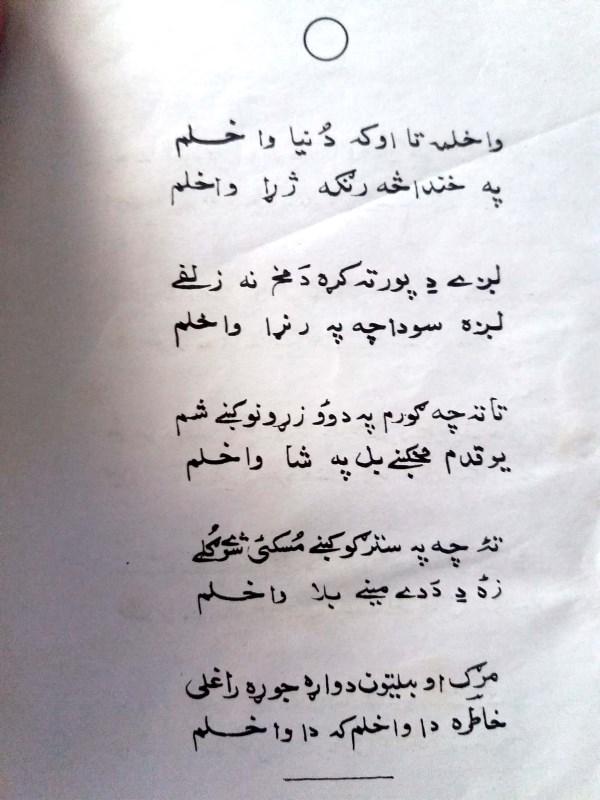 واخلمه تا اوکه دُنیا واخلم
په خنداڅه رنګه ژړا واخلم
لږے دِ پورته کړه دَ مخ نه زلفے
لږه سوداچه په رنړا واخلم
تا ته چه ګورم په دوؤ زړونو کښے شم
یو قدم مخکښے بل په شا واخلم
تهٔ چه په سترګو کښے مُسکئ شوے ګُلے
زهٔ دِ دَ دے مینے بلا واخلم
مرګ او بیلتون دواړه جوړه راغلی
خاطره دا واخلم که دا واخلم